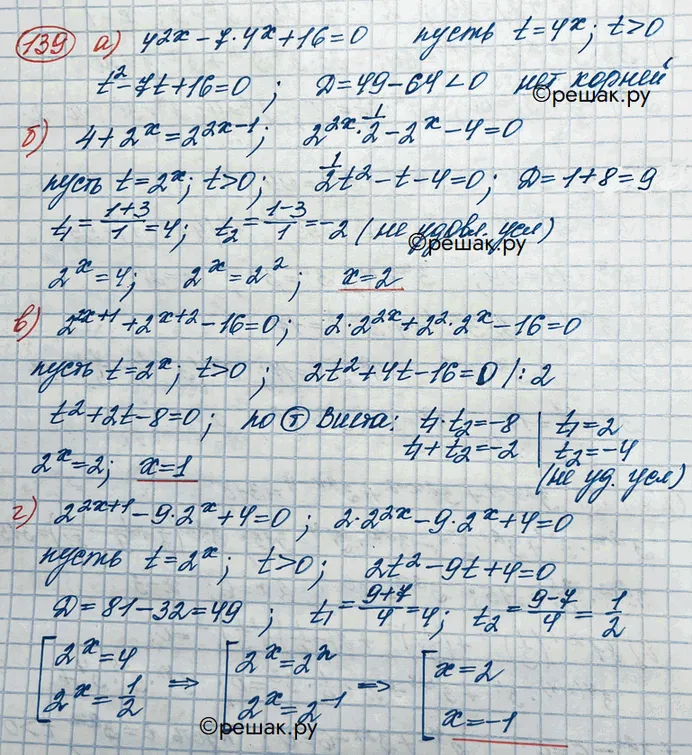 139 а) 4^2x − 7·4^x + 16 = 0 пусть t = 4^x; t > 0
t² − 7t + 16 = 0; D = 49 − 64 < 0 нет корней
©решак.ру
б) 4 + 2^x = 2^(2x−1); 2^2x · 1/2 − 2^x − 4 = 0
пусть t = 2^x; t > 0; 1/2 t² − t − 4 = 0; D = 1 + 8 = 9
t₁ = (1+3)/1 = 4; t₂ = (1−3)/1 = −2 (не удовл. усл)
©решак.ру
2^x = 4; 2^x = 2²; x = 2
в) 2^(2x+1) + 2^(x+2) − 16 = 0; 2·2^2x + 2²·2^x − 16 = 0
пусть t = 2^x; t > 0; 2t² + 4t − 16 = 0 |: 2
t² + 2t − 8 = 0; по Т Виета: t₁·t₂ = −8 | t₁ = 2
t₁ + t₂ = −2 | t₂ = −4
2^x = 2; x = 1 (не уд. усл)
г) 2^(2x+1) − 9·2^x + 4 = 0; 2·2^2x − 9·2^x + 4 = 0
пусть t = 2^x; t > 0; 2t² − 9t + 4 = 0
D = 81 − 32 = 49; t₁ = (9+7)/4 = 4; t₂ = (9−7)/4 = 1/2
[2^x = 4 ⇒ [2^x = 2² ⇒ [x = 2
2^x = 1/2 2^x = 2^−1 x = −1
©решак.ру